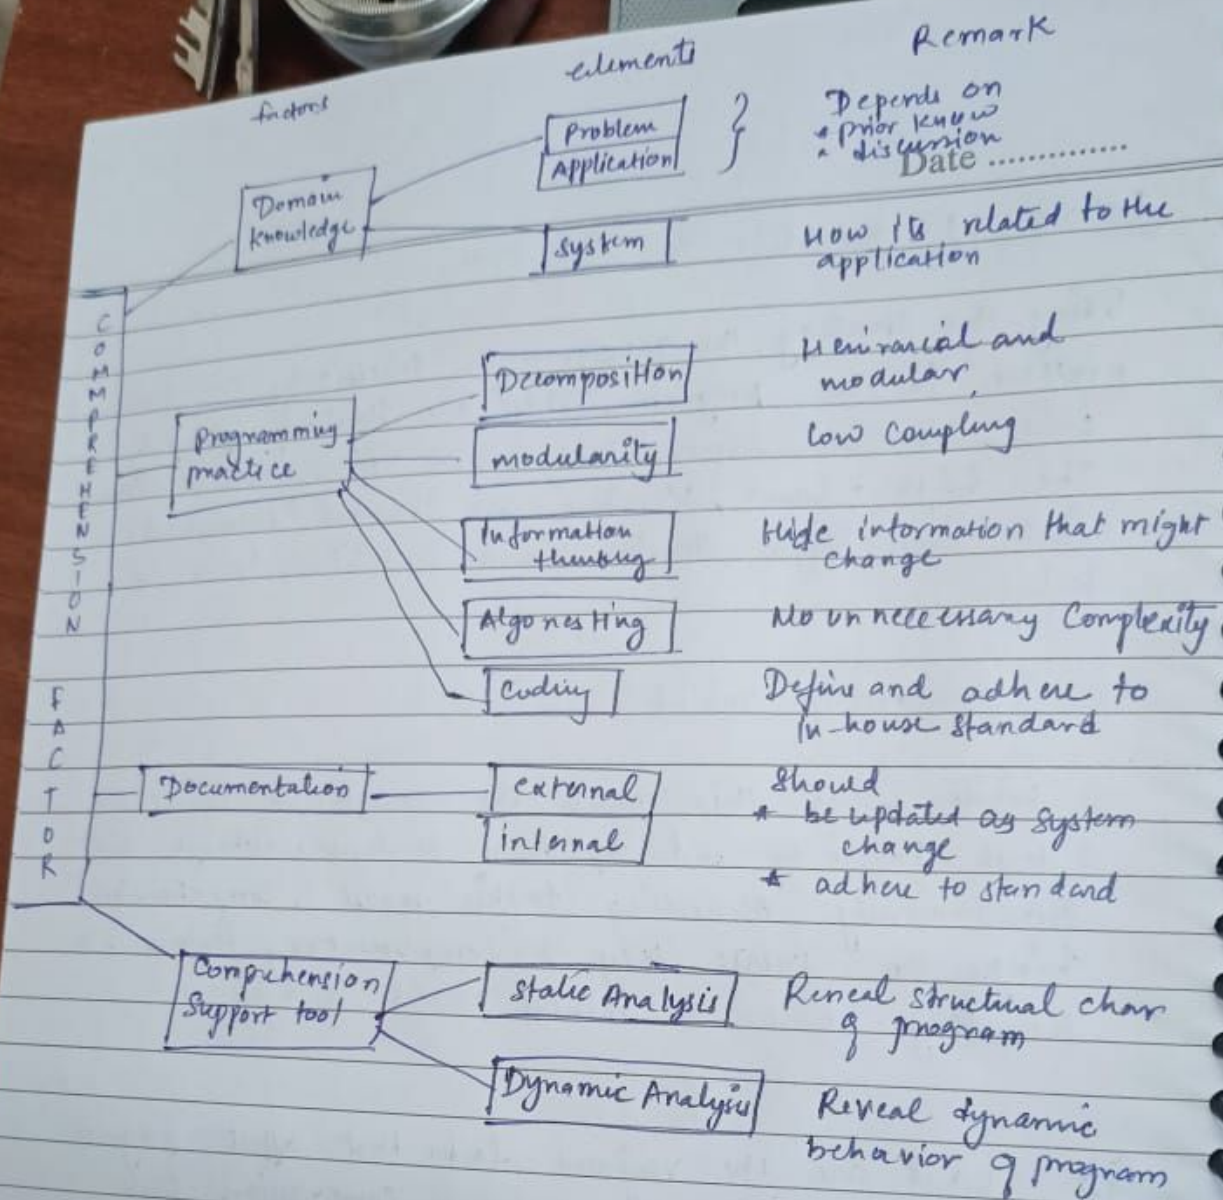 factors
elements
Remark
Problem
Application
}
Depends on
* prior know
* discussion
Date ..............
Domain
knowledge
System
How its related to the
application
COMMPREHENSION
FACTOR
Decomposition
Heirarcial and
modular,
Programming
practice
modularity
low coupling
Information
Hide information that might
change
Algo nesting
No unnecessary Complexity
Coding
Define and adhere to
in-house standard
Documentation
external
internal
Should
* be updated as system
change
* adhere to standard
Comprehension
Support tool
Static Analysis
Reneal structural char
of program
Dynamic Analysis
Reveal dynamic
behavior of program